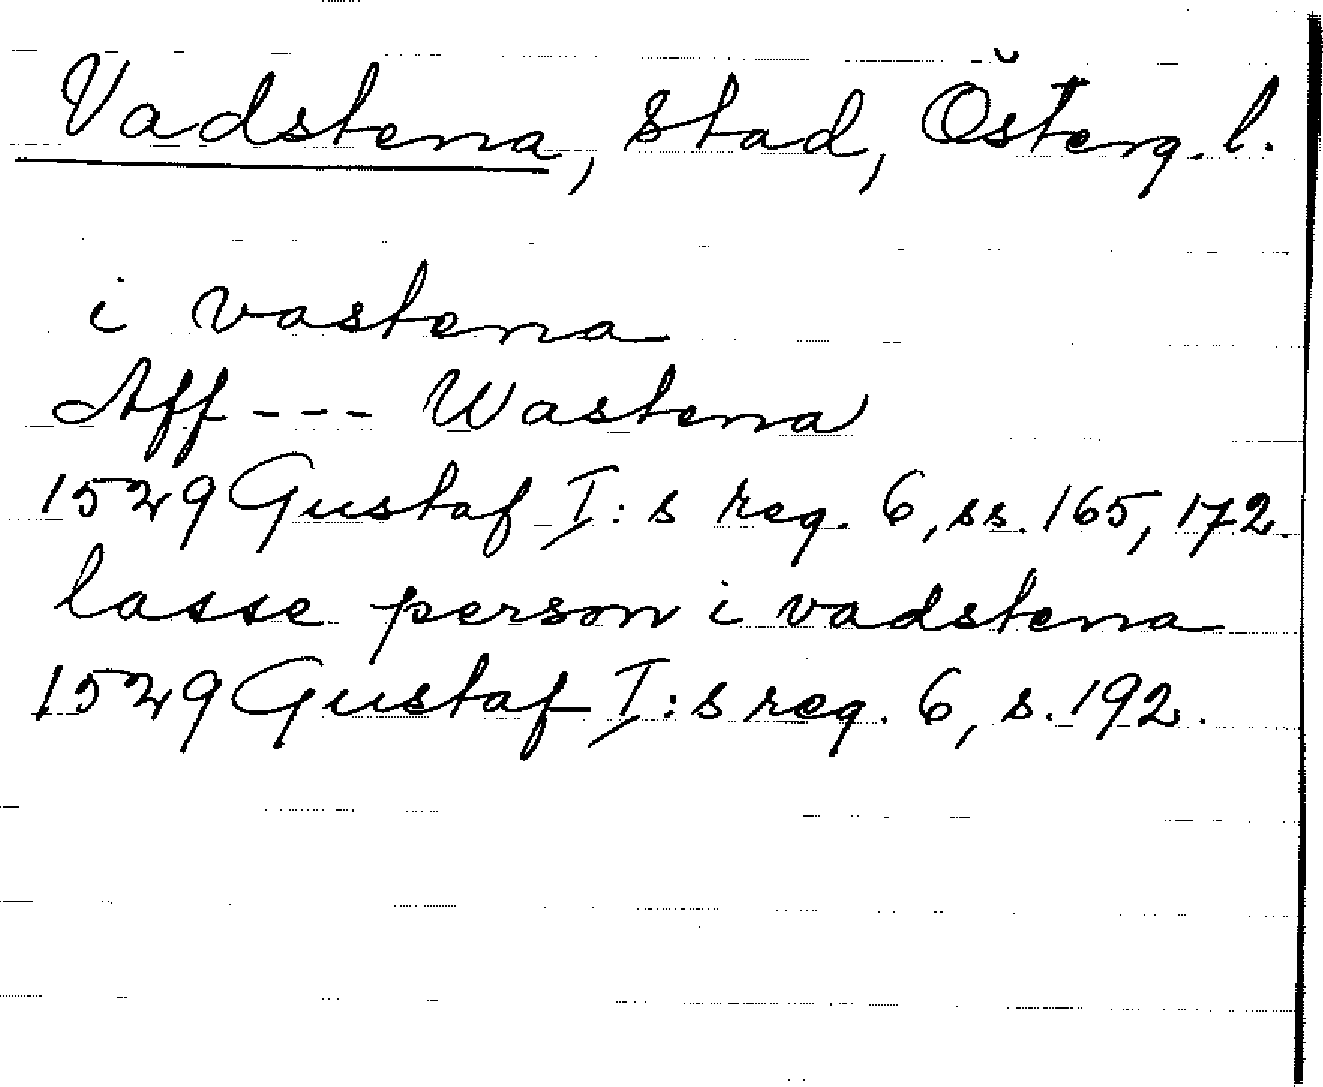 Vadstena, stad, Österg. l.
i vastena
Aff --- Wastena
1529 Gustaf I:s reg. 6, ss. 165, 172.
lasse person i vadstena
1529 Gustaf I:s reg. 6, s. 192.